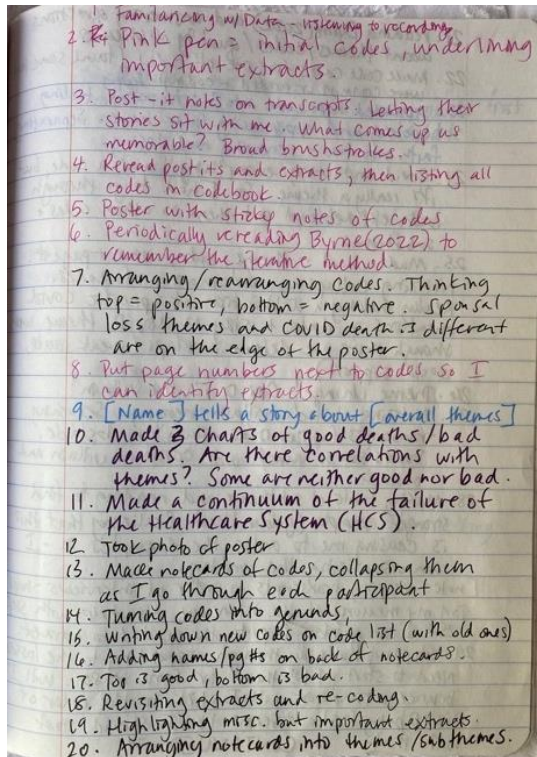 1. Familiarizing w/ Data - listening to recordings
2. Pink pen = initial codes, underlining
important extracts.
3. Post-it notes on transcripts. Letting their
stories sit with me. What comes up as
memorable? Broad brushstrokes.
4. Reread post its and extracts, then listing all
codes in codebook.
5. Poster with sticky notes of codes
6. Periodically rereading Byrne (2022) to
remember the iterative method.
7. Arranging/rearranging codes. Thinking
top = positive, bottom = negative. Spousal
loss themes and COVID death is different
are on the edge of the poster.
8. Put page numbers next to codes so I
can identify extracts.
9. [Name] tells a story about [overall themes]
10. Made 3 charts of good deaths/bad
deaths. Are there correlations with
themes? Some are neither good nor bad.
11. Made a continuum of the failure of
the Healthcare System (HCS).
12 Took photo of poster
13. Made notecards of codes, collapsing them
as I go through each participant
14. Turning codes into gerunds,
15. Writing down new codes on code list (with old ones)
16. Adding names/pg #s on back of notecards.
17. Top is good, bottom is bad.
18. Revisiting extracts and re-coding.
19. Highlighting misc. but important extracts.
20. Arranging notecards into themes/subthemes.